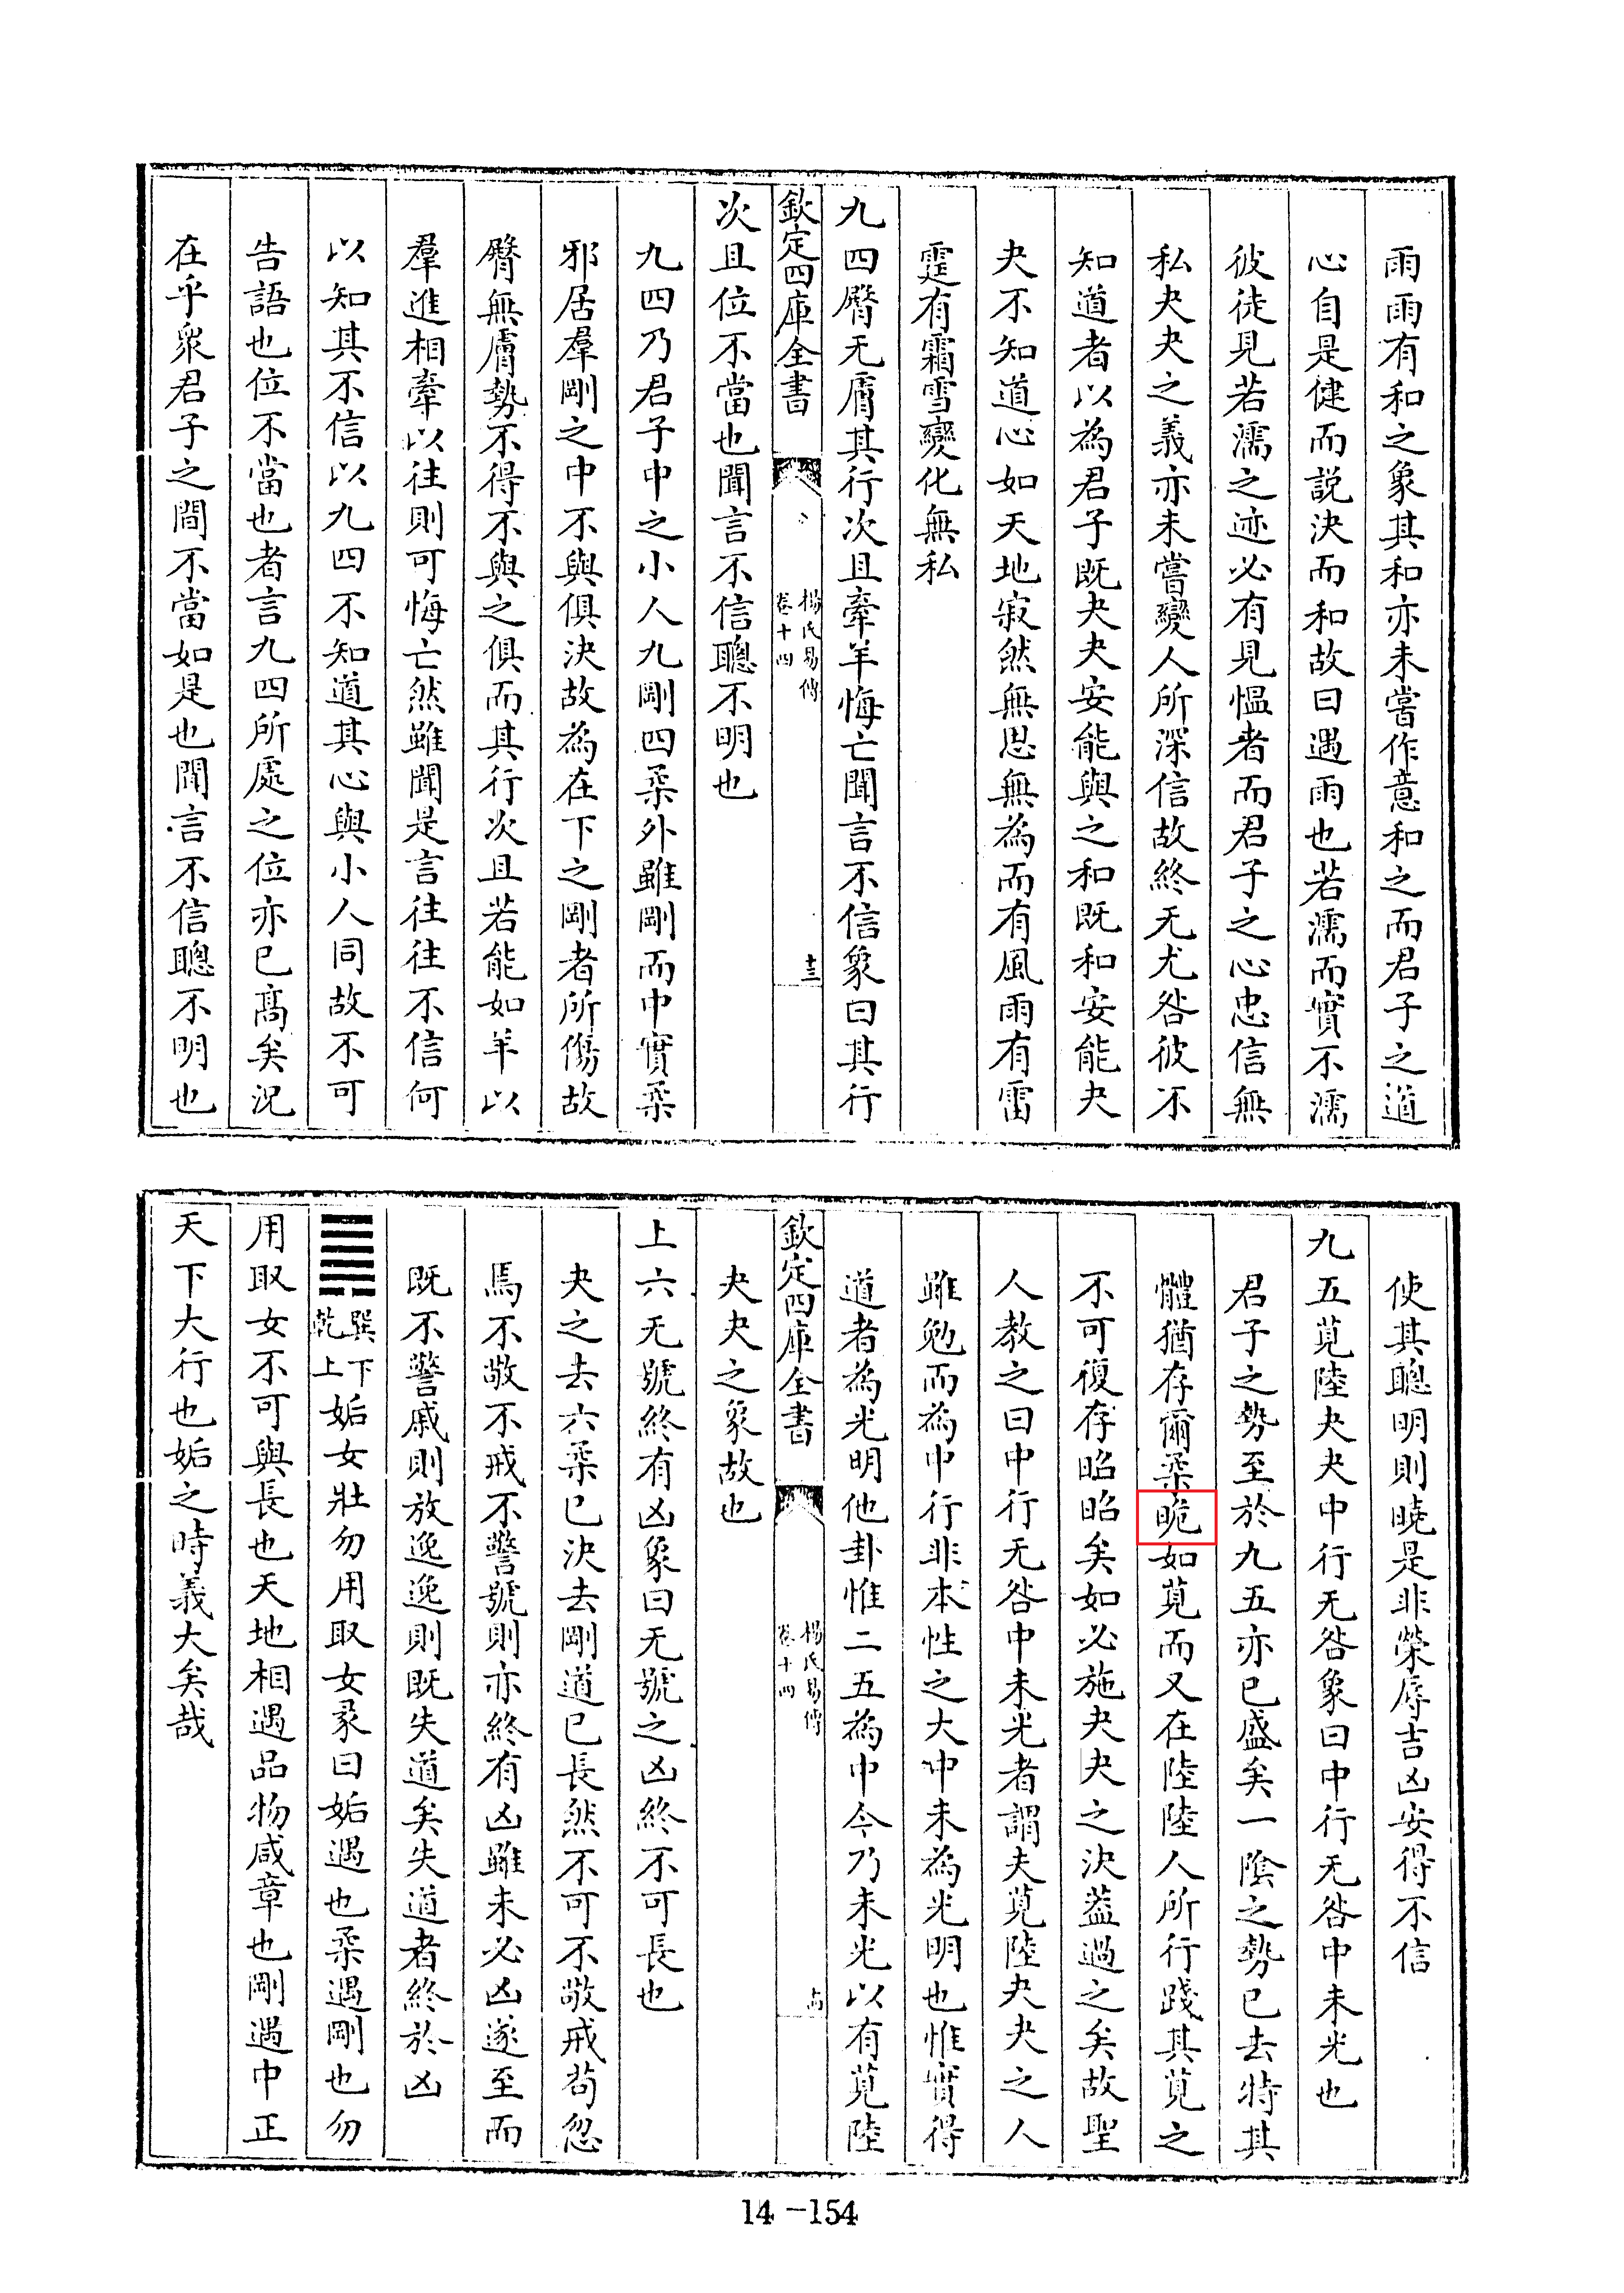 雨雨有和之象其和亦未嘗作意和之而君子之道
心自是健而説決而和故曰遇雨也若濡而實不濡
彼徒見若濡之迹必有見愠者而君子之心忠信無
私夬夬之義亦未嘗變人所深信故終无尤咎彼不
知道者以為君子既夬夬安能與之和既和安能夬
夬不知道心如天地寂然無思無為而有風雨有雷
霆有霜雪變化無私
九四臀无膚其行次且牽羊悔亡聞言不信象曰其行
欽定四庫全書
楊氏易傳
卷十四
十三
次且位不當也聞言不信聰不明也
九四乃君子中之小人九剛四柔外雖剛而中實柔
邪居羣剛之中不與俱決故為在下之剛者所傷故
臀無膚勢不得不與之俱而其行次且若能如羊以
羣進相牽以往則可悔亡然雖聞是言往往不信何
以知其不信以九四不知道其心與小人同故不可
告語也位不當也者言九四所處之位亦已髙矣況
在乎衆君子之間不當如是也聞言不信聰不明也
使其聰明則曉是非榮辱吉凶安得不信
九五莧陸夬夬中行无咎象曰中行无咎中未光也
君子之勢至於九五亦已盛矣一隂之勢已去特其
體猶存爾柔脆如莧而又在陸陸人所行踐其莧之
不可復存昭昭矣如必施夬夬之決葢過之矣故聖
人教之曰中行无咎中未光者謂夫莧陸夬夬之人
雖勉而為中行非本性之大中未為光明也惟實得
道者為光明他卦惟二五為中今乃未光以有莧陸
欽定四庫全書
楊氏易傳
卷十四
十四
夬夬之象故也
上六无號終有凶象曰无號之凶終不可長也
夬之去六柔已決去剛道已長然不可不敬戒茍忽
焉不敬不戒不警號則亦終有凶雖未必凶遂至而
既不警戚則放逸逸則既失道矣失道者終於凶
䷫巽下乾上姤女壯勿用取女彖曰姤遇也柔遇剛也勿
用取女不可與長也天地相遇品物咸章也剛遇中正
天下大行也姤之時義大矣哉
14-154